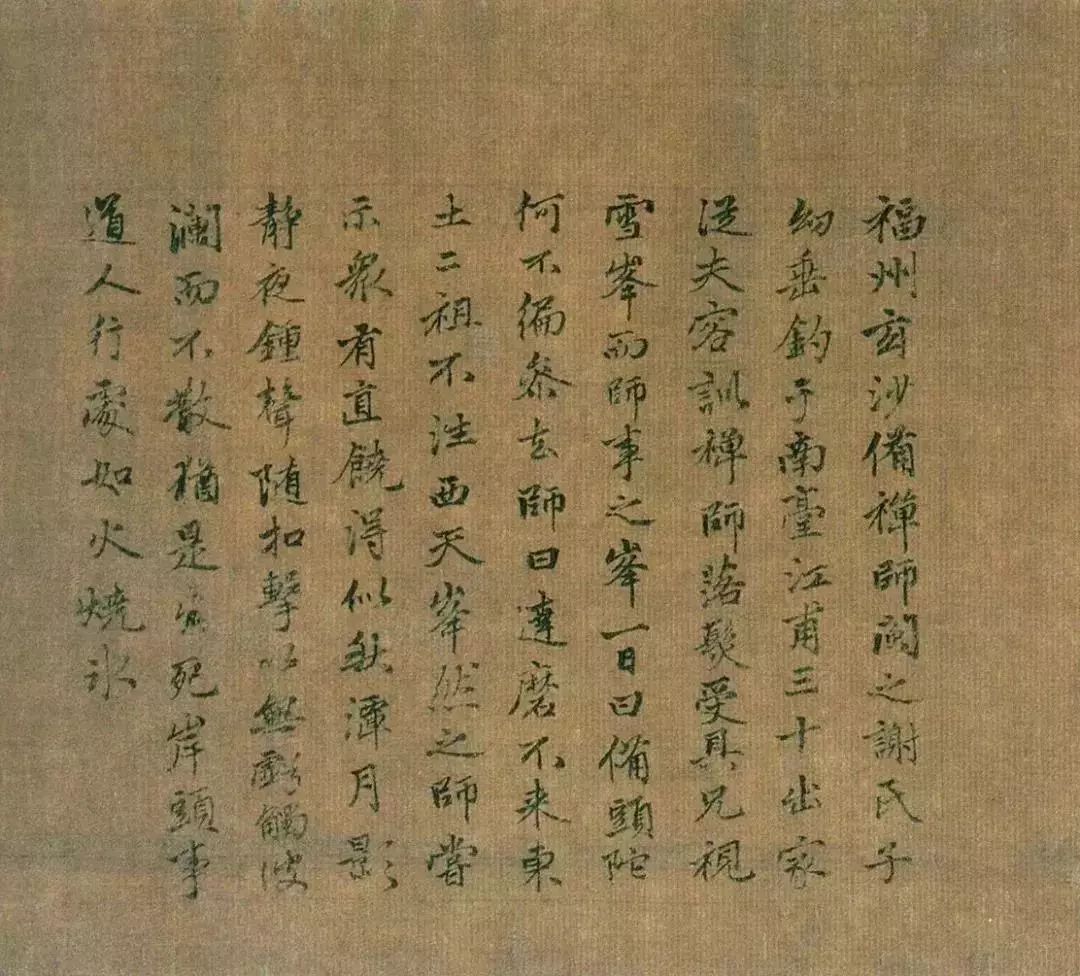 福州玄沙備禪師閩之謝氏子
幼垂釣于南臺江甫三十出家
從夫容訓禪師落髮受具兄視
雪峯而師事之峯一日曰備頭陀
何不徧叅去師曰達磨不来東
土二祖不往西天峯然之師嘗
示衆有直饒得似秋潭月影
静夜鍾聲随扣擊以無虧觸波
瀾而不散猶是生死岸頭事
道人行處如火燒冰